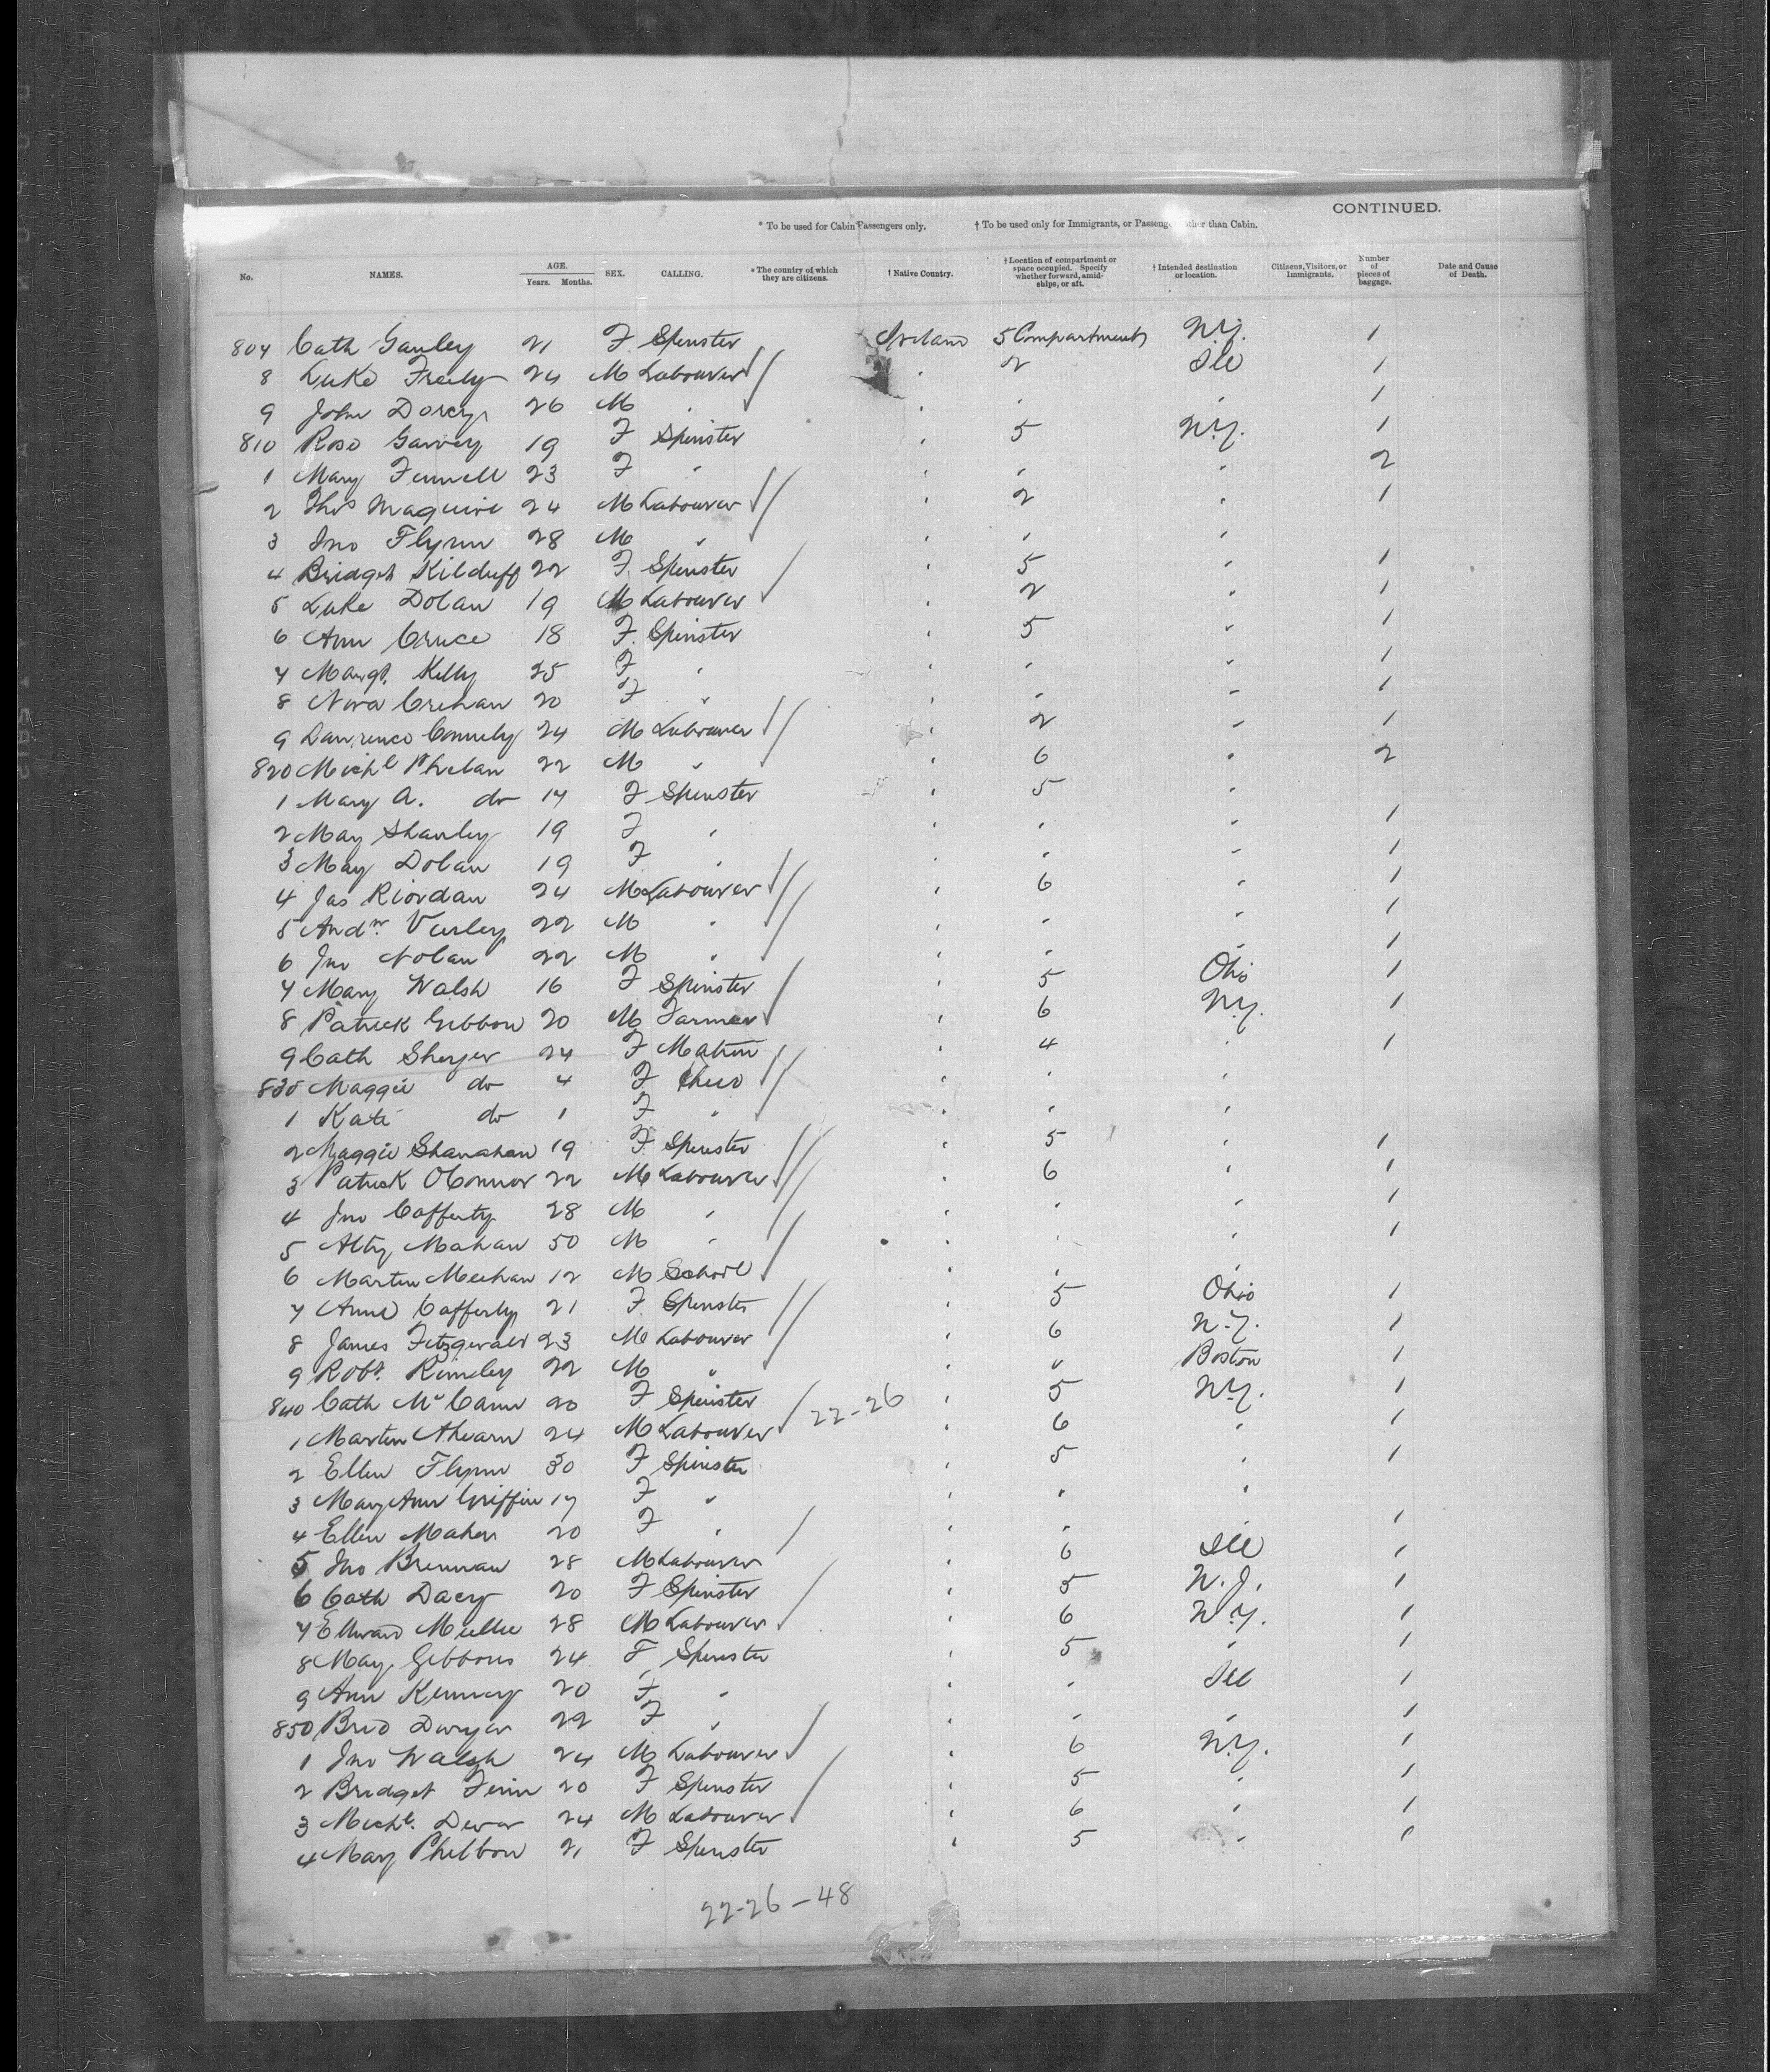 CONTINUED.
* To be used for Cabin Passengers only. † To be used only for Immigrants, or Passeng ther than Cabin.
No. NAMES. AGE. Years. Months. SEX. CALLING. * The country of which they are citizens. † Native Country. † Location of compartment or space occupied. Specify whether forward, amidships, or aft. † Intended destination or location. Citizens, Visitors, or Immigrants. Number of pieces of baggage. Date and Cause of Death.
807 Cath Ganley 21 F Spinster Ireland 5 Compartment N.Y. 1
8 Luke Freely 24 M Labourer " 2 Ill 1
9 John Dorcy 26 M " " " " 1
810 Rose Garvey 19 F Spinster " 5 N.Y. 1
1 Mary Fennell 23 F " " " " 2
2 Thos Maguire 24 M Labourer " 2 " 1
3 Jno Flynn 28 M " " " "
4 Bridget Kilduff 22 F Spinster " 5 " 1
5 Luke Dolan 19 M Labourer " 2 " 1
6 Ann Cruce 18 F Spinster " 5 " 1
7 Margt. Kelly 25 F " " " " 1
8 Nora Crehan 20 F " " " " 1
9 Lawrence Connely 24 M Labourer " 2 " 1
820 Michl Phelan 22 M " " 6 " 2
1 Mary A. do 17 F Spinster " 5 "
2 May Shanley 19 F " " " " 1
3 May Dolan 19 F " " " " 1
4 Jas Riordan 24 M Labourer " 6 " 1
5 Andw. Varley 22 M " " " " 1
6 Jno Nolan 22 M " " " " 1
7 Mary Walsh 16 F Spinster " 5 Ohio 1
8 Patrick Gibbon 20 M Farmer " 6 N.Y. 1
9 Cath 24 F Matron " 4 " 1
830 Maggie do 4 F Child " " "
1 Kate do 1 F " " " "
2 Maggie Shanahan 19 F Spinster " 5 " 1
3 Patrick OConnor 22 M Labourer " 6 " 1
4 Jno Cafferty 28 M " " " " 1
5 Mahan 50 M " " " " 1
6 Martin Meehan 12 M School " " "
7 Anne Cafferty 21 F Spinster " 5 Ohio 1
8 James Fitzgerald 23 M Labourer " 6 N.Y. 1
9 Robt. Rimeley 22 M " " " Boston 1
840 Cath McCann 20 F Spinster " 5 N.Y. 1
22-26
1 Martin Ahearn 24 M Labourer " 6 " 1
2 Ellen Flynn 30 F Spinster " 5 " 1
3 Mary Ann Griffin 17 F " " " "
4 Ellen Maher 20 F " " " " 1
5 Jno Brennan 28 M Labourer " 6 Ill 1
6 Cath Dacy 20 F Spinster " 5 N.J. 1
7 Edward 28 M Labourer " 6 N.Y. 1
8 May Gibbons 24 F Spinster " 5 " 1
9 Ann Kenney 20 F " " " Ill 1
850 Brid Dwyer 22 F " " " " 1
1 Jno Walsh 24 M Labourer " 6 N.Y. 1
2 Bridget Finn 20 F Spinster " 5 " 1
3 Michl. 24 M Labourer " 6 " 1
4 May Philbon 21 F Spinster " 5 " 1
22-26-48